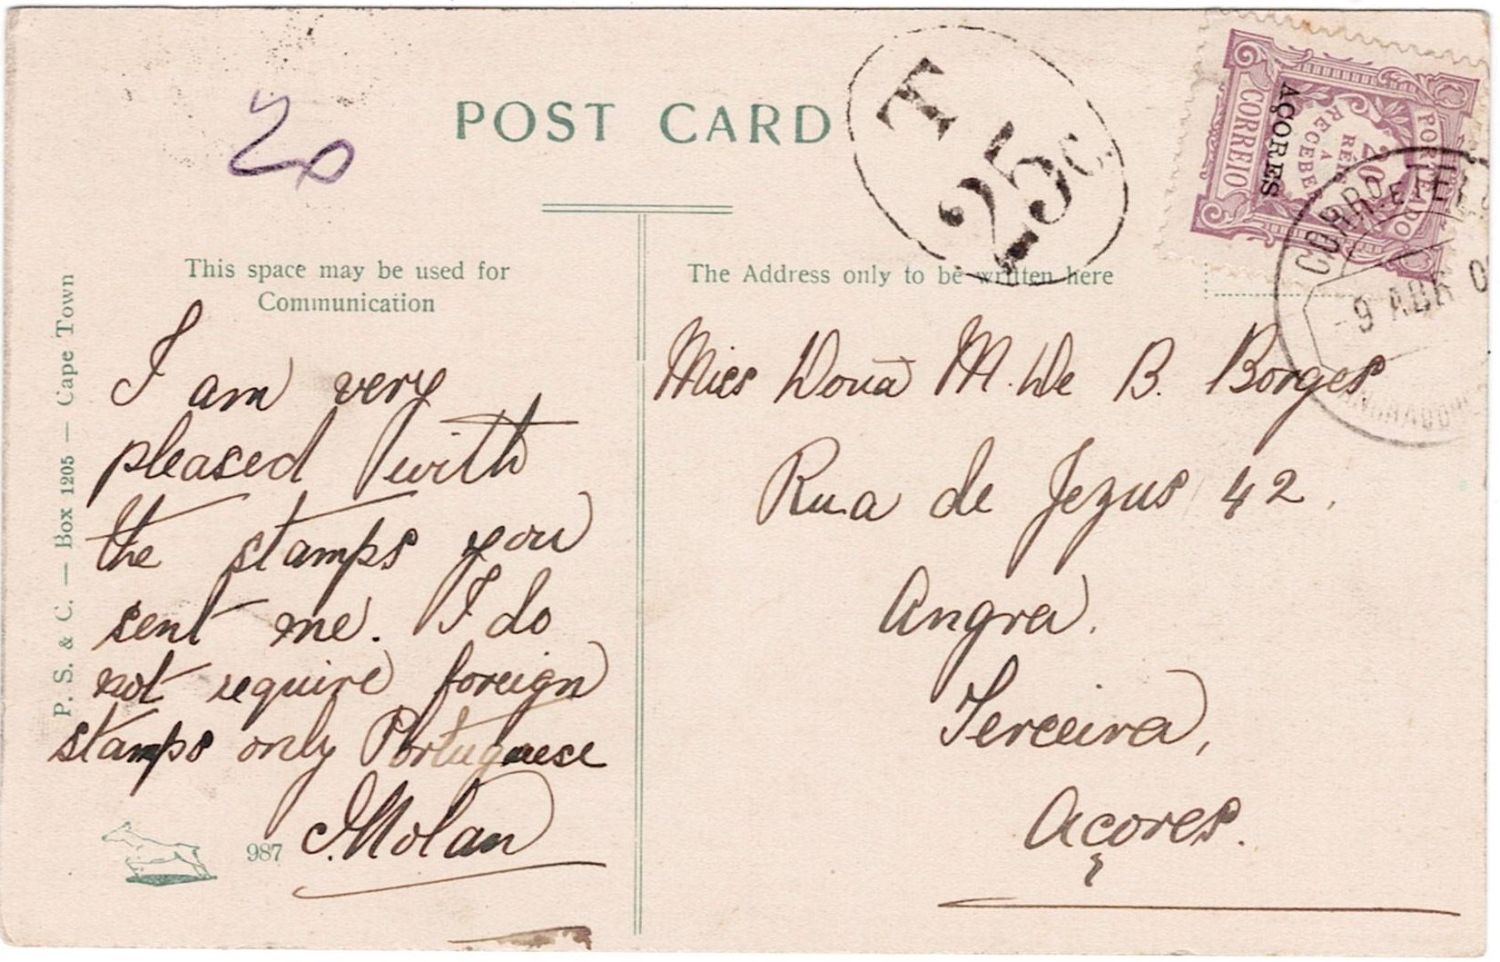 20
POST CARD
T
25c.
AÇORES
CORREIO
PORTEADO
RECEBER
A
20 RÉIS
CORRO E TEL
-9 ABR 0
This space may be used for
Communication
The Address only to be written here
P. S. & C. — Box 1205 — Cape Town
I am very
pleased with
the stamps you
sent me. I do
not require foreign
stamps only Portuguese
987
J. Molan
Miss Doná M. De B. Borges
Rua de Jezus 42.
Angra.
Terceira,
Açores.